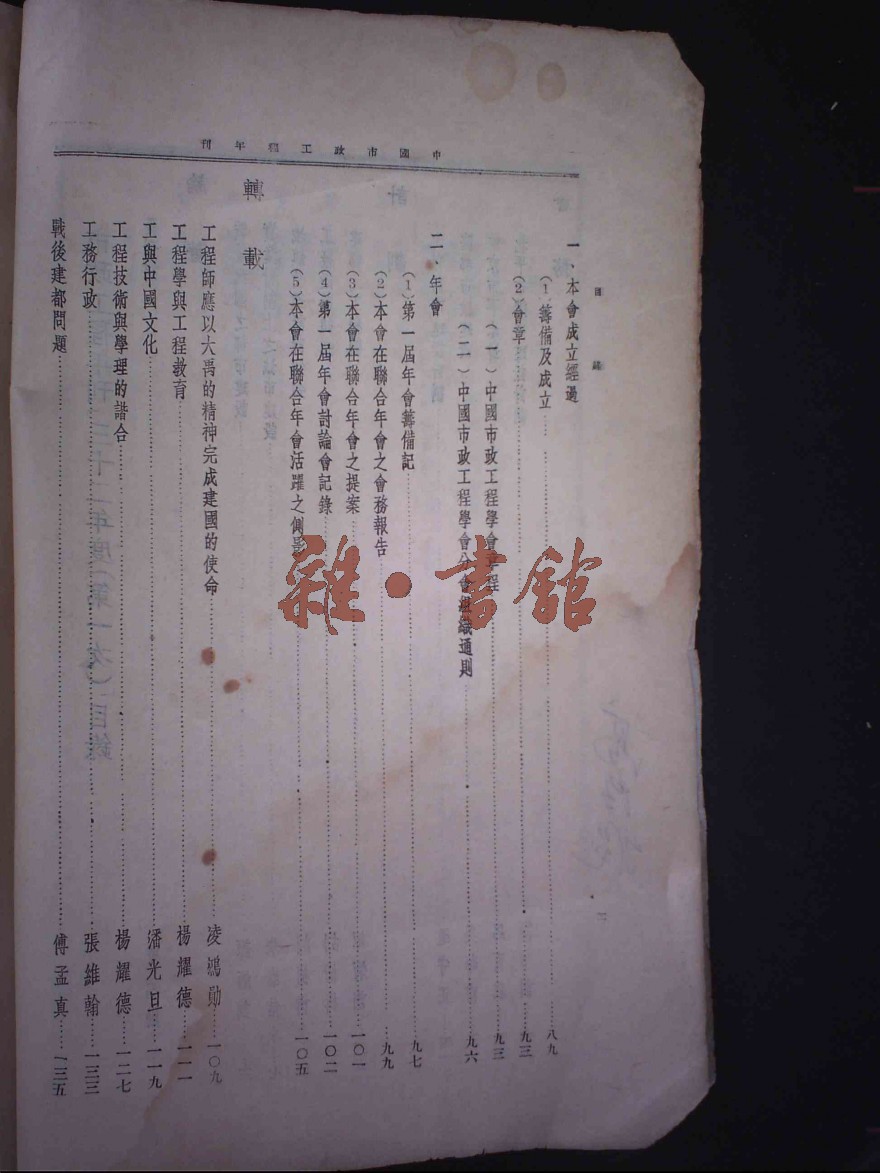 中國市政工程年刊
目錄
一 本會成立經過
(1)籌備及成立……八九
(2)會章……九三
(一)中國市政工程學會章程……九三
(二)中國市政工程學會分會組織通則……九六
二、年會
(1)第一屆年會籌備記……九七
(2)本會在聯合年會之會務報告……九九
(3)本會在聯合年會之提案……一〇一
(4)第一屆年會討論會記錄……一〇二
(5)本會在聯合年會活躍之側影……一〇五
轉載
工程師應以大禹的精神完成建國的使命……凌鴻勛……一〇九
工程學與工程教育……楊耀德……一一一
工與中國文化……潘光旦……一一九
工程技術與學理的諧合……楊耀德……一二七
工務行政……張維翰……一三三
戰後建都問題……傅孟真……一三五
雜·書館